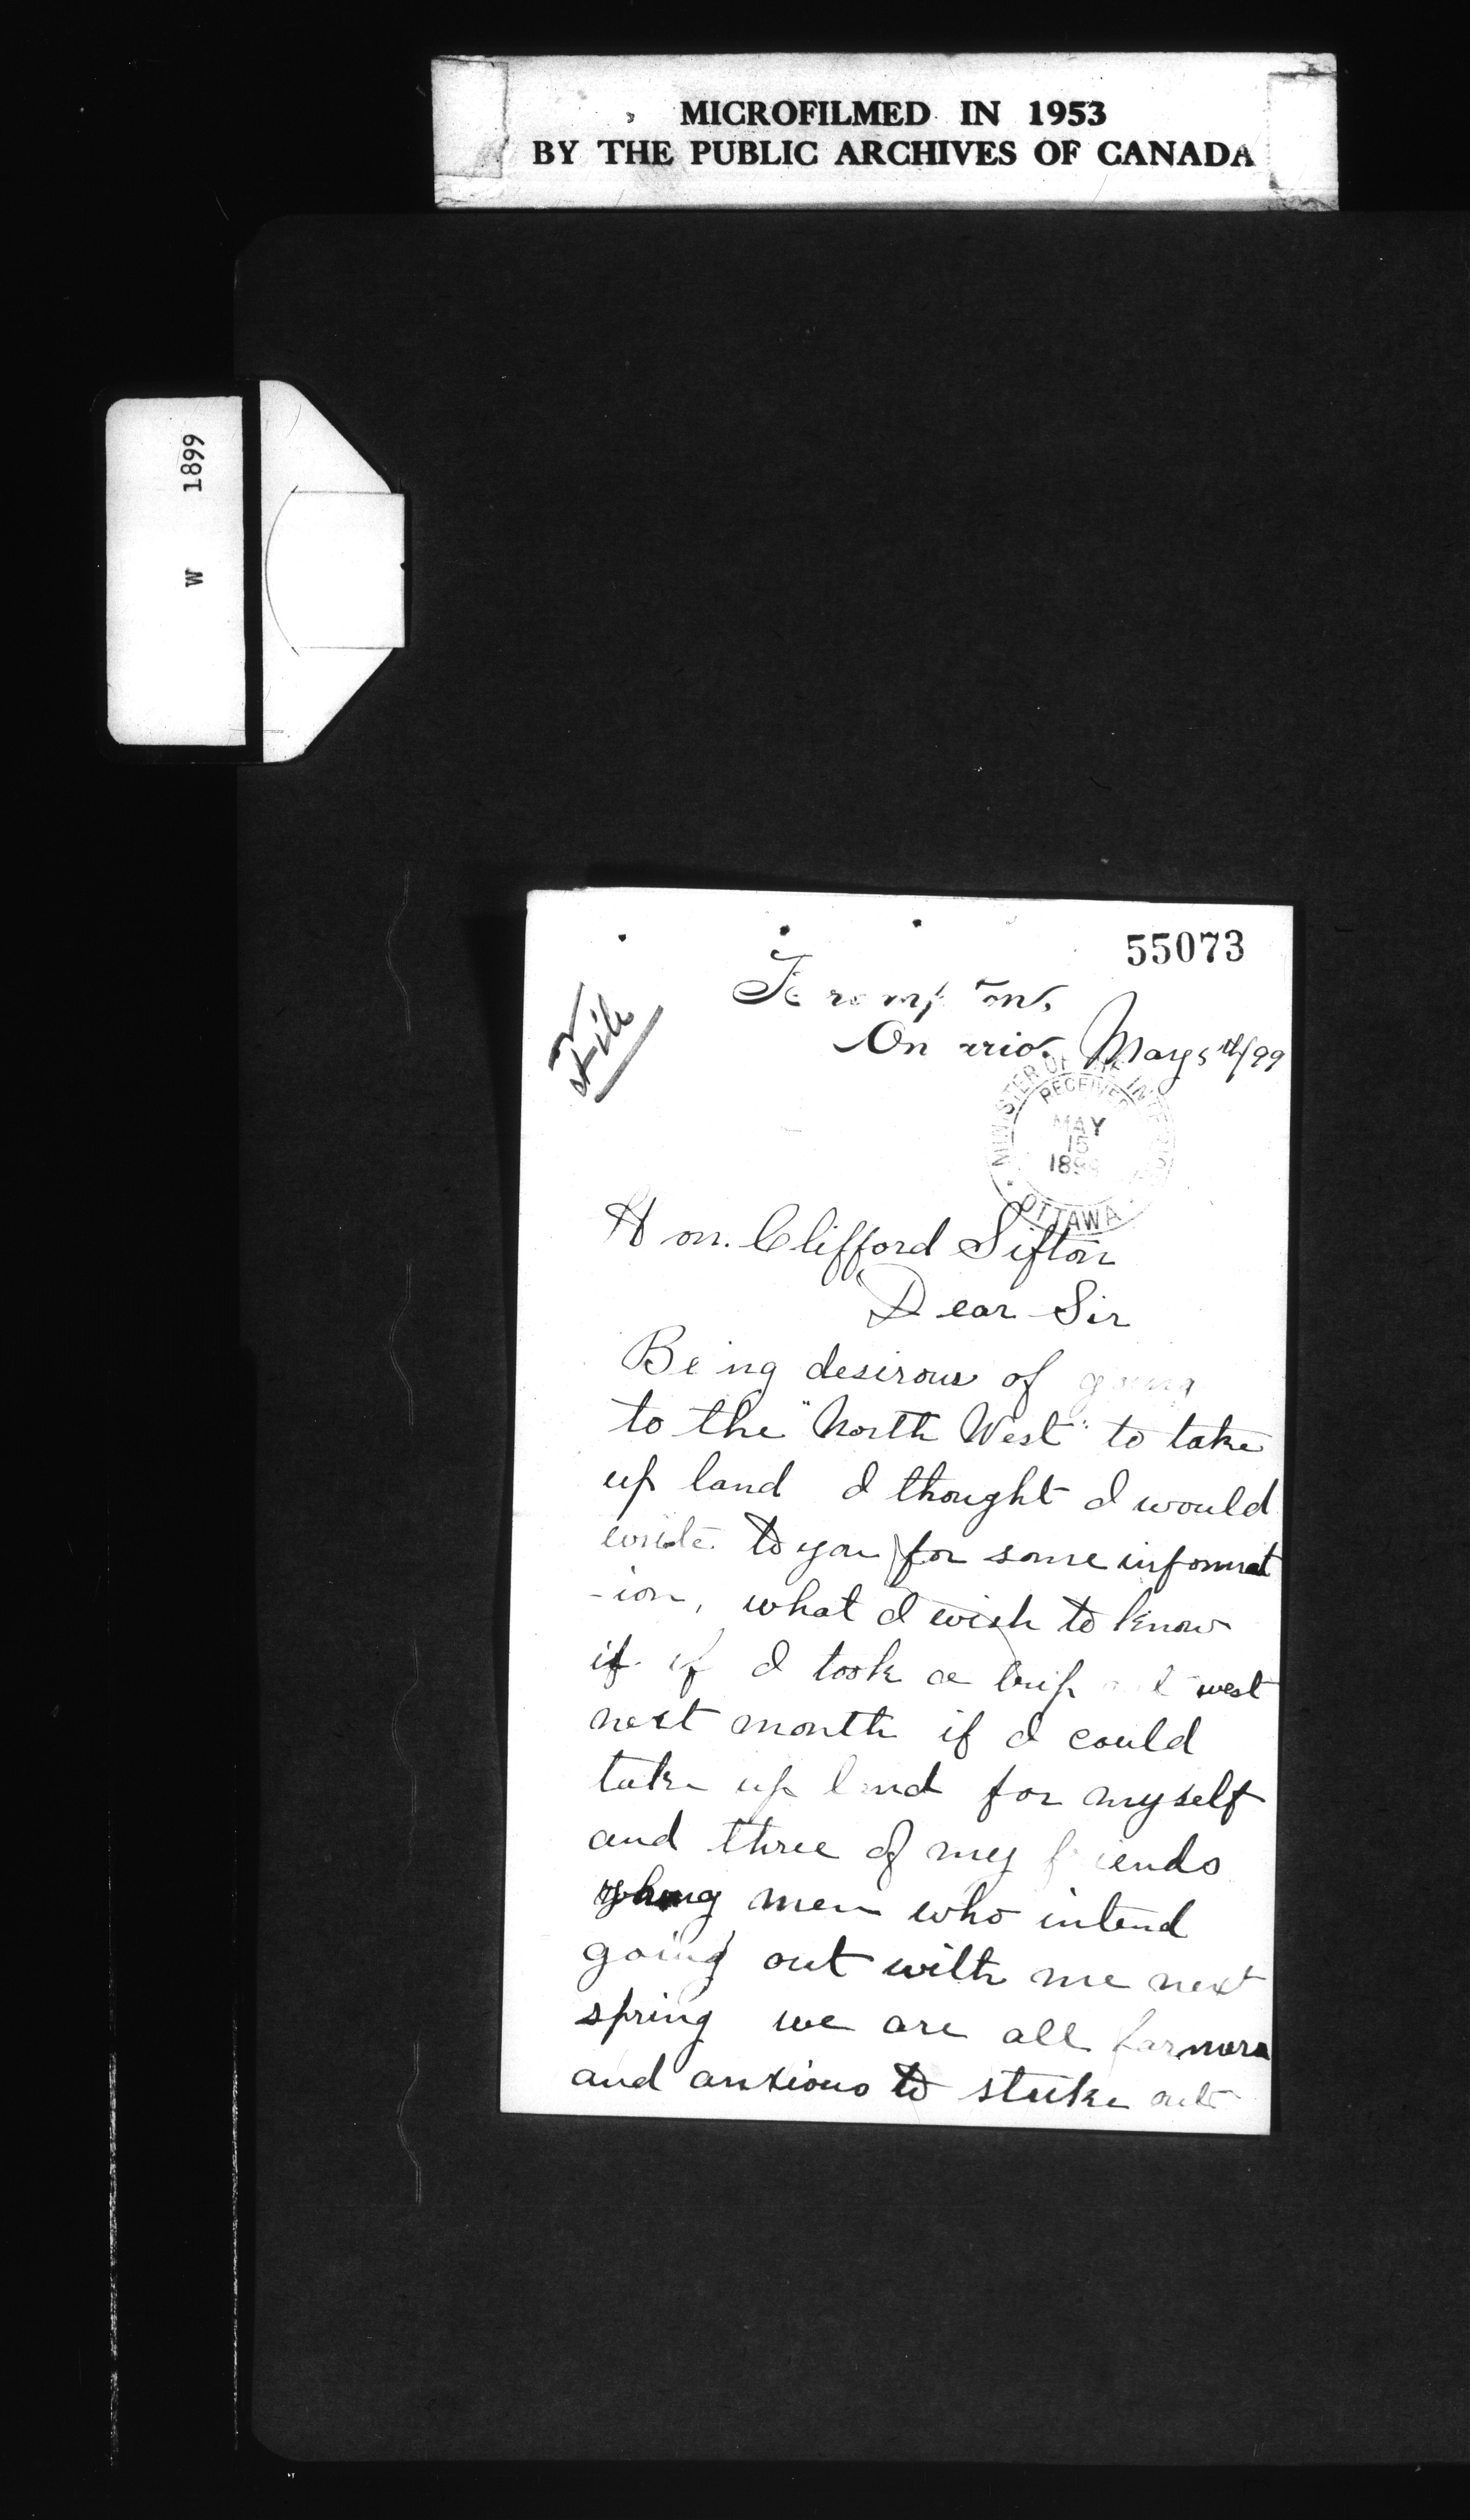 MICROFILMED IN 1953
BY THE PUBLIC ARCHIVES OF CANADA
W 1899
55073
File
On rio. May 5th/99
MINISTER OF THE INTERIOR
RECEIVED
MAY
15
1899
OTTAWA
Hon. Clifford Sifton
Dear Sir
Being desirous of going
to the "North West" to take
up land I thought I would
write to you for some informat
-ion, what I wish to know
if if I took a trip west
next month if I could
take up land for myself
and three of my friends
young men who intend
going out with me next
spring we are all farmers
and anxious to strike out